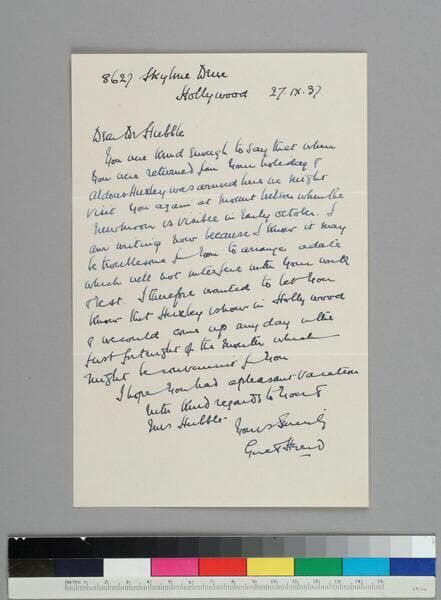 8627 Skyline Drive
Hollywood 27.IX.37
Dear Dr Hubble
You were kind enough to say that when
you were returned from your holiday &
Aldous Huxley was arrived here we might
visit you again at Mount Wilson when the
new moon is visible in early October. I
am writing now because I know it may
be troublesome for you to arrange a date
which will not interfere with your work
& rest. I therefore wanted to let you
know that Huxley is now in Hollywood
& we could come up any day in the
first fortnight of the month which
might be convenient for you
I hope you had a pleasant vacation
With kind regards to you &
Mrs Hubble
Yours Sincerely
Gerald Heard
0 1 2 3 4 5 6 7 8 9 10 11 12 13 14 15